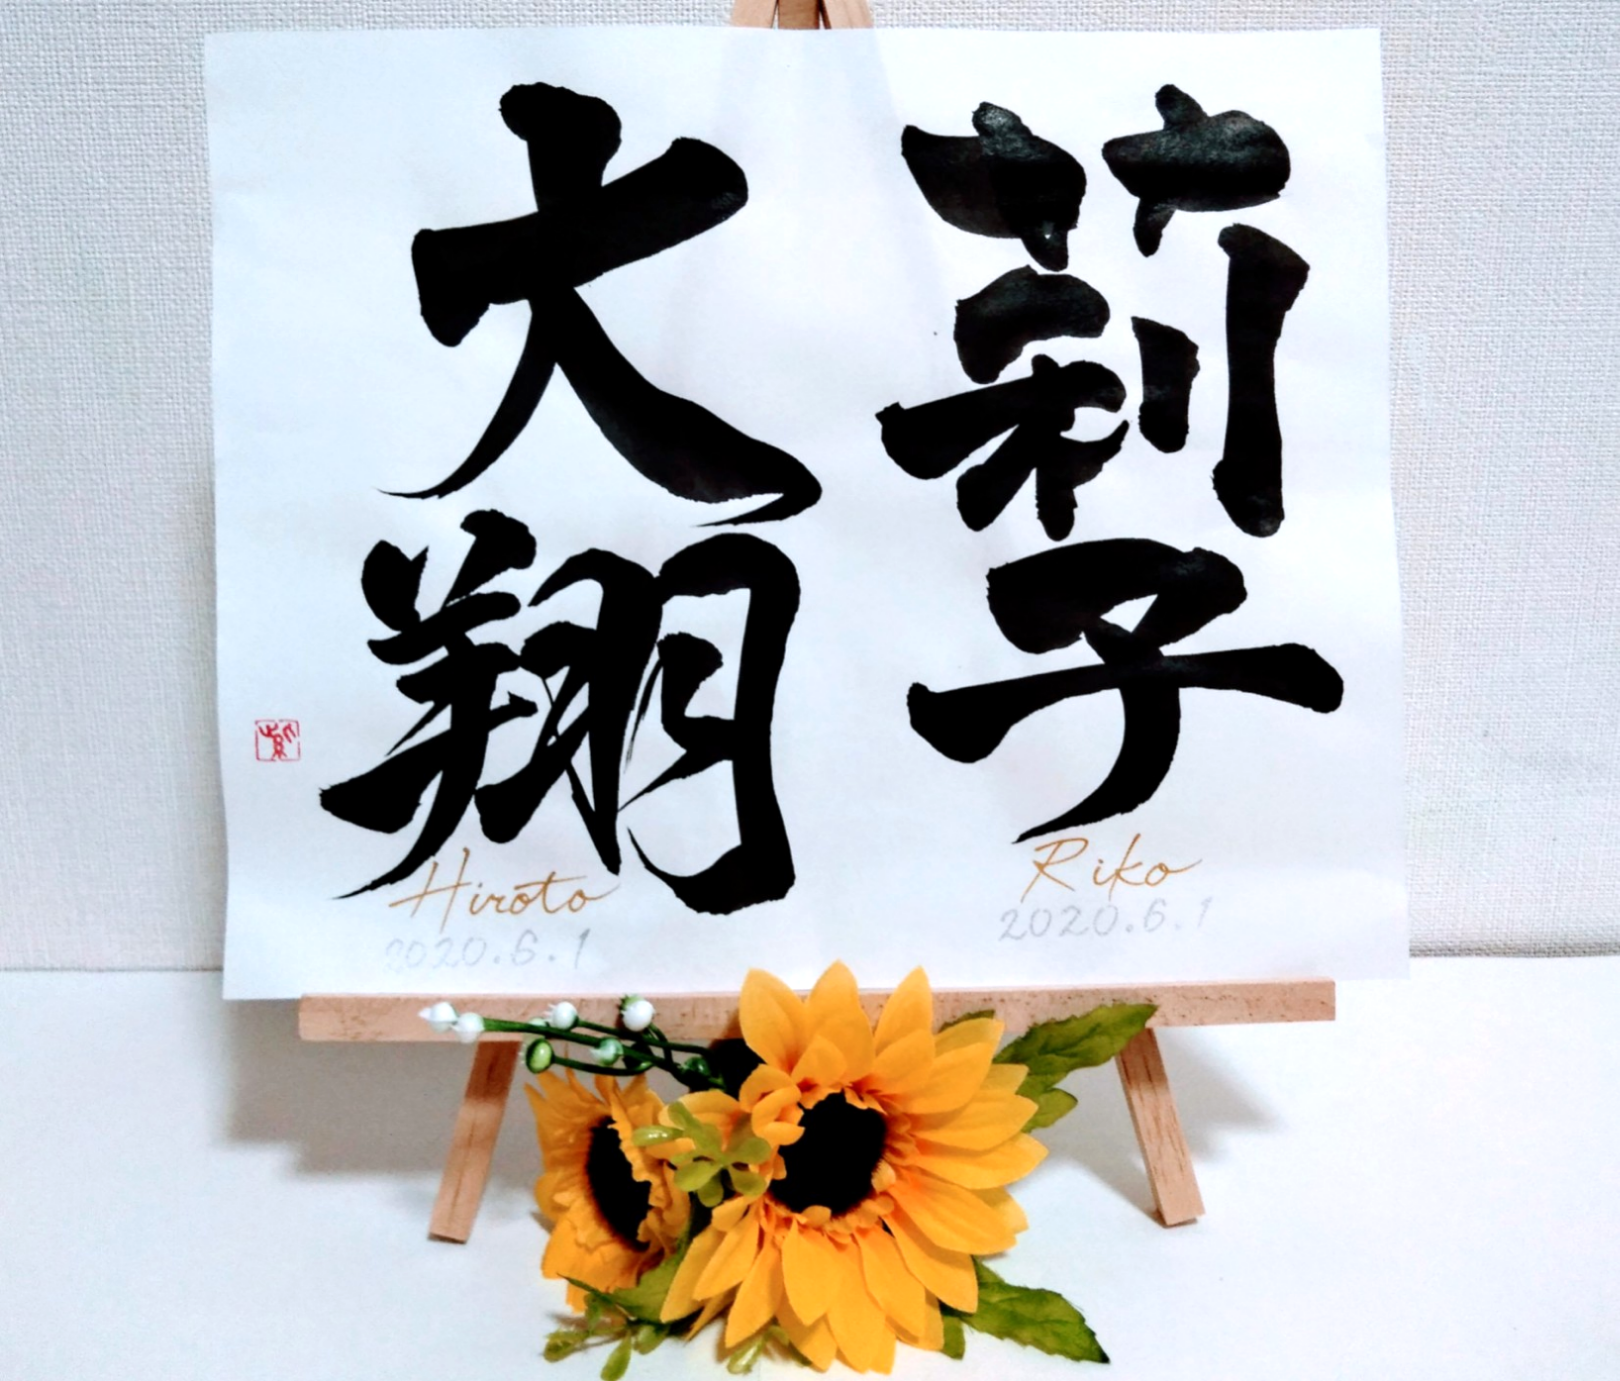 莉子
Riko
2020.6.1
大翔
Hiroto
2020.6.1